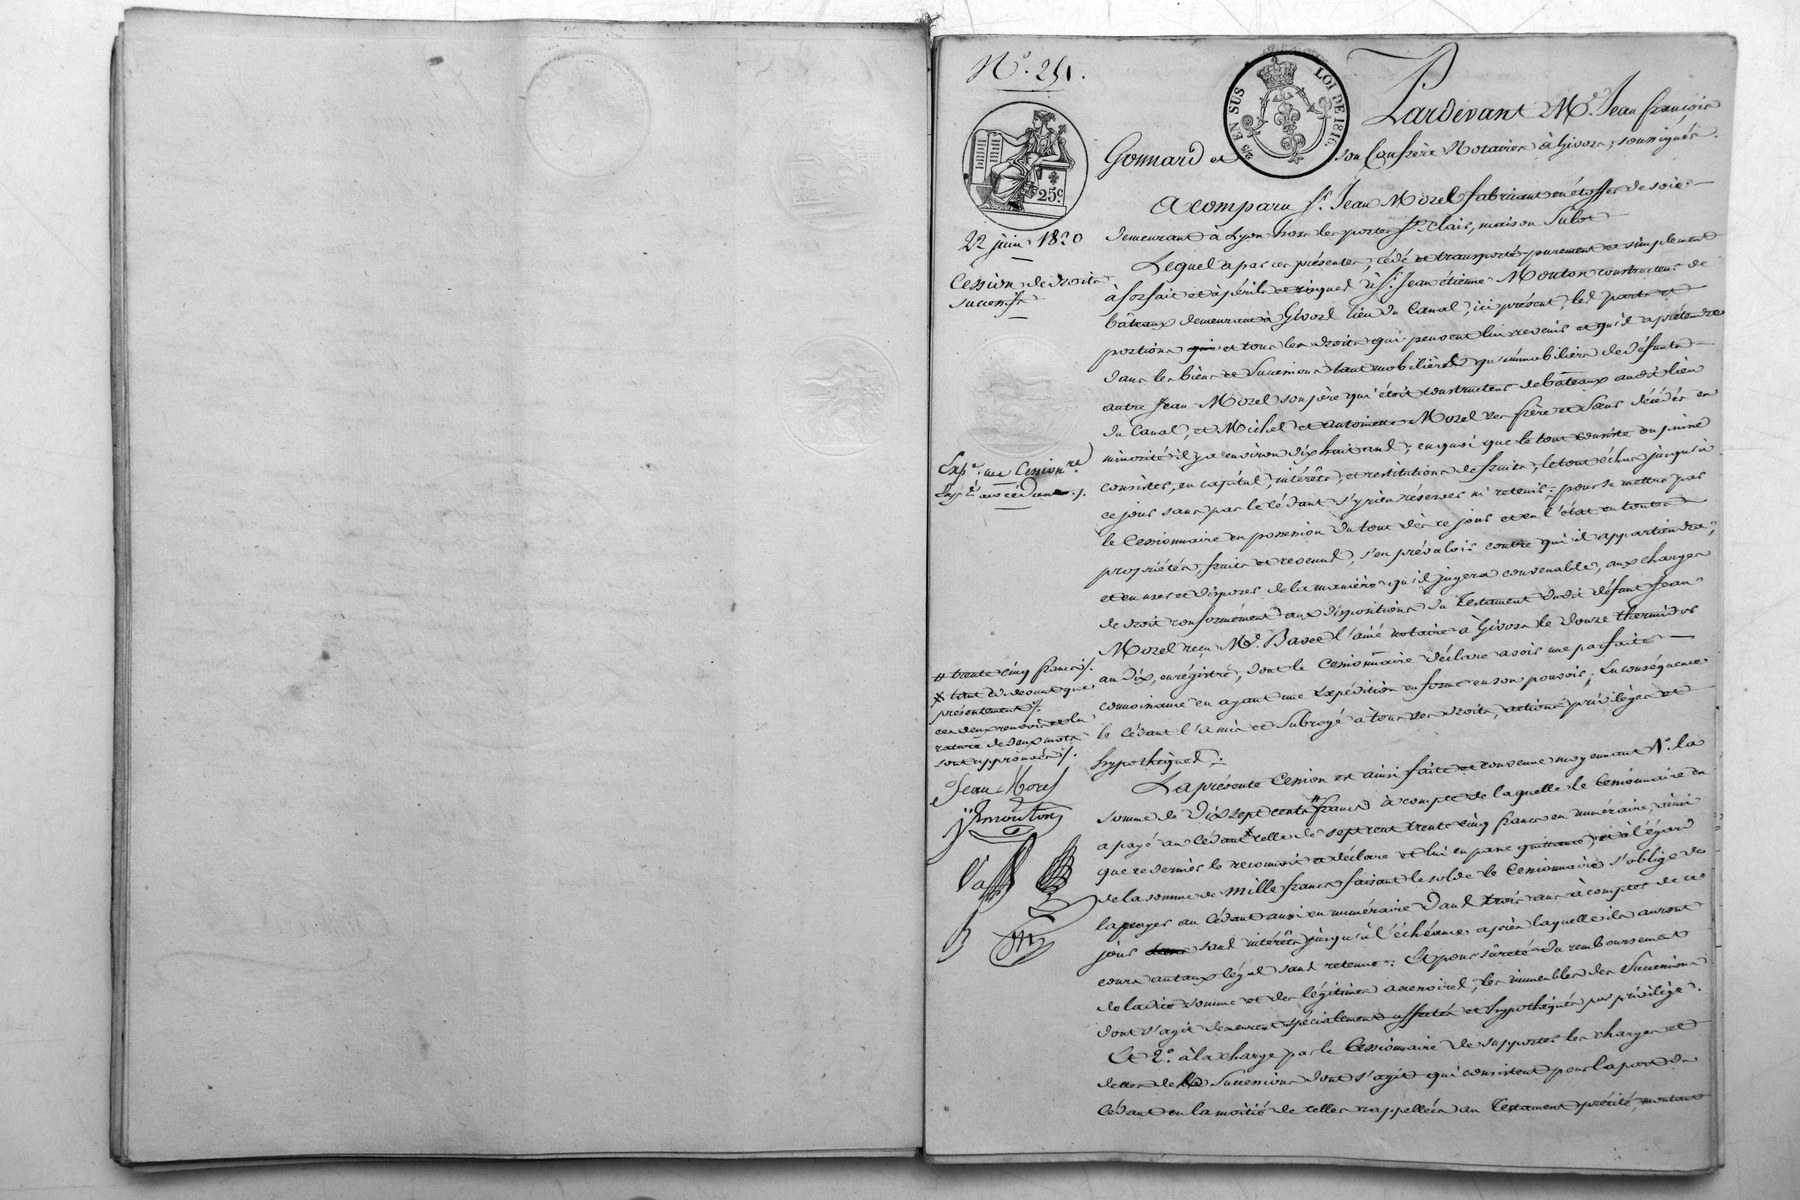 N.° 251.
2/5 EN SUS
LOI DE 1816.
25c.
22 juin 1820
Cession de droits
success.fs
Exp.é au Cessionn.re
Exp.é au cédant ./.
# trente cinq francs /.
présentement /.
ces deux renvois et la
rature de deux mots
sont approuvés /.
Jean Morel
jemouton
Pardevant M.e Jean françois
Gonnard et son Confrère Notaires à Givors, soussignés.
A comparu s.r Jean Morel fabricant en étoffes de soie
demeurant à Lyon hors les portes S.t Clair, maison
Lequel a par ces présentes, cédé et transporté purement et simplement
à forfait et à périls et risques à s.r Jean étienne Mouton constructeur de
bâteaux demeurant à Givors lieu du Canal, ici présent, les parts et
portions qui et tous les droits qui peuvent lui revenir et qu'il a à prétendre
dans les biens et Successions tant mobilières qu'immobilières de défunts
autre Jean Morel son père qui étoit constructeur de bâteaux audit lieu
du Canal, et Michel et antoinette Morel ses frère et sœur décédés en
minorité il y a environ dix huit ans; en quoi que le tout consiste ou puisse
consister, en capital, intérêts, et restitutions de fruits, le tout échus jusqu'à
ce jour sans par le cédant s'y rien réserver ni retenir; pour se mettre par
le Cessionnaire en possession du tout dès ce jour et en l'état en toutes
propriétés, fruits et revenus, s'en prévaloir contre qui il appartiendra,
et en user et disposer de la manière qu'il jugera convenable, aux charges
de droit conformément aux dispositions du Testament dudit défunt Jean
Morel reçu M.e l'aîné notaire à Givors le douze thermidor
an dix, enregistré, dont le Cessionnaire déclare avoir une parfaite
connoissance en ayant une Expédition en forme en son pouvoir; En conséquence
le cédant l'a mis et subrogé à tous ses droits, actions privilèges et
hypothèques.
La présente Cession est ainsi faite et convenue moyennant 1.° la
somme de Dix sept cents # francs à compte de laquelle le Cessionnaire en
a payé au cédant celle de sept cent trente cinq francs en numéraire, ainsi
que ce dernier le reconnoit et déclare et lui en passe quittance, et à l'égard
de la somme de Mille francs faisant le solde le Cessionnaire s'oblige de
la payer au cédant aussi en numéraire dans trois ans à compter de ce
jour sans intérêts jusqu'à l'échéance après laquelle ils auront
cours au taux légal sans retenue: Et pour sûreté du remboursement
de ladite somme et des légitimes accessoires, les immeubles des Successions
dont s'agit demeurent spécialement affectés et hypothéqués par privilège.
Et 2.° à la charge par le Cessionnaire de supporter les charges et
dettes de la Successions dont s'agit qui consistent pour la part du
Cédant en la moitié de celles rappellées au Testament précité, montant